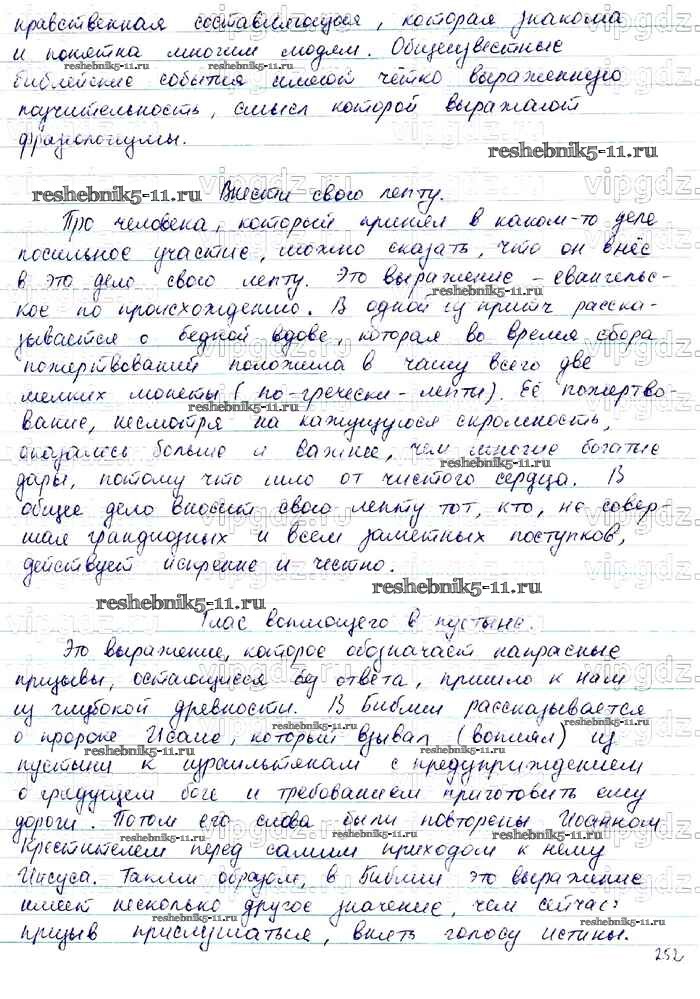 нравственная составляющая, которая знакома
и понятна многим людям. Общеизвестные
reshebnik5-11.ru
библейские события имеют чётко выраженную
поучительность, смысл которой выражают
фразеологизмы.
reshebnik5-11.ru
reshebnik5-11.ru
Внести свою лепту.
Про человека, который принял в каком-то деле
посильное участие, можно сказать, что он внёс
в это дело свою лепту. Это выражение – евангельс-
reshebnik5-11.ru
кое по происхождению. В одной из притч расска-
зывается о бедной вдове, которая во время сбора
reshebnik5-11.ru
пожертвований положила в чашу всего две
мелких монеты (по-гречески – лепты). Её пожертво-
reshebnik5-11.ru
вание, несмотря на кажущуюся скромность,
оказалось больше и важнее, чем многие богатые
reshebnik5-11.ru
дары, потому что шло от чистого сердца. В
общее дело вносит свою лепту тот, кто, не совер-
шая грандиозных и всем заметных поступков,
действует искренне и честно.
reshebnik5-11.ru
reshebnik5-11.ru
Глас вопиющего в пустыне.
Это выражение, которое обозначает напрасные
призывы, остающиеся без ответа, пришло к нам
из глубокой древности. В Библии рассказывается
reshebnik5-11.ru
reshebnik5-11.ru
о пророке Исаие, который взывал (вопиял) из
reshebnik5-11.ru
reshebnik5-11.ru
пустыни к израильтянам с предупреждением
о грядущем боге и требованием приготовить ему
дороги. Потом его слова были повторены Иоанном
reshebnik5-11.ru
reshebnik5-11.ru
Крестителем перед самим приходом к нему
Иисуса. Таким образом, в Библии это выражение
имеет несколько другое значение, чем сейчас:
reshebnik5-11.ru
reshebnik5-11.ru
призыв прислушаться, внять голосу истины.
252